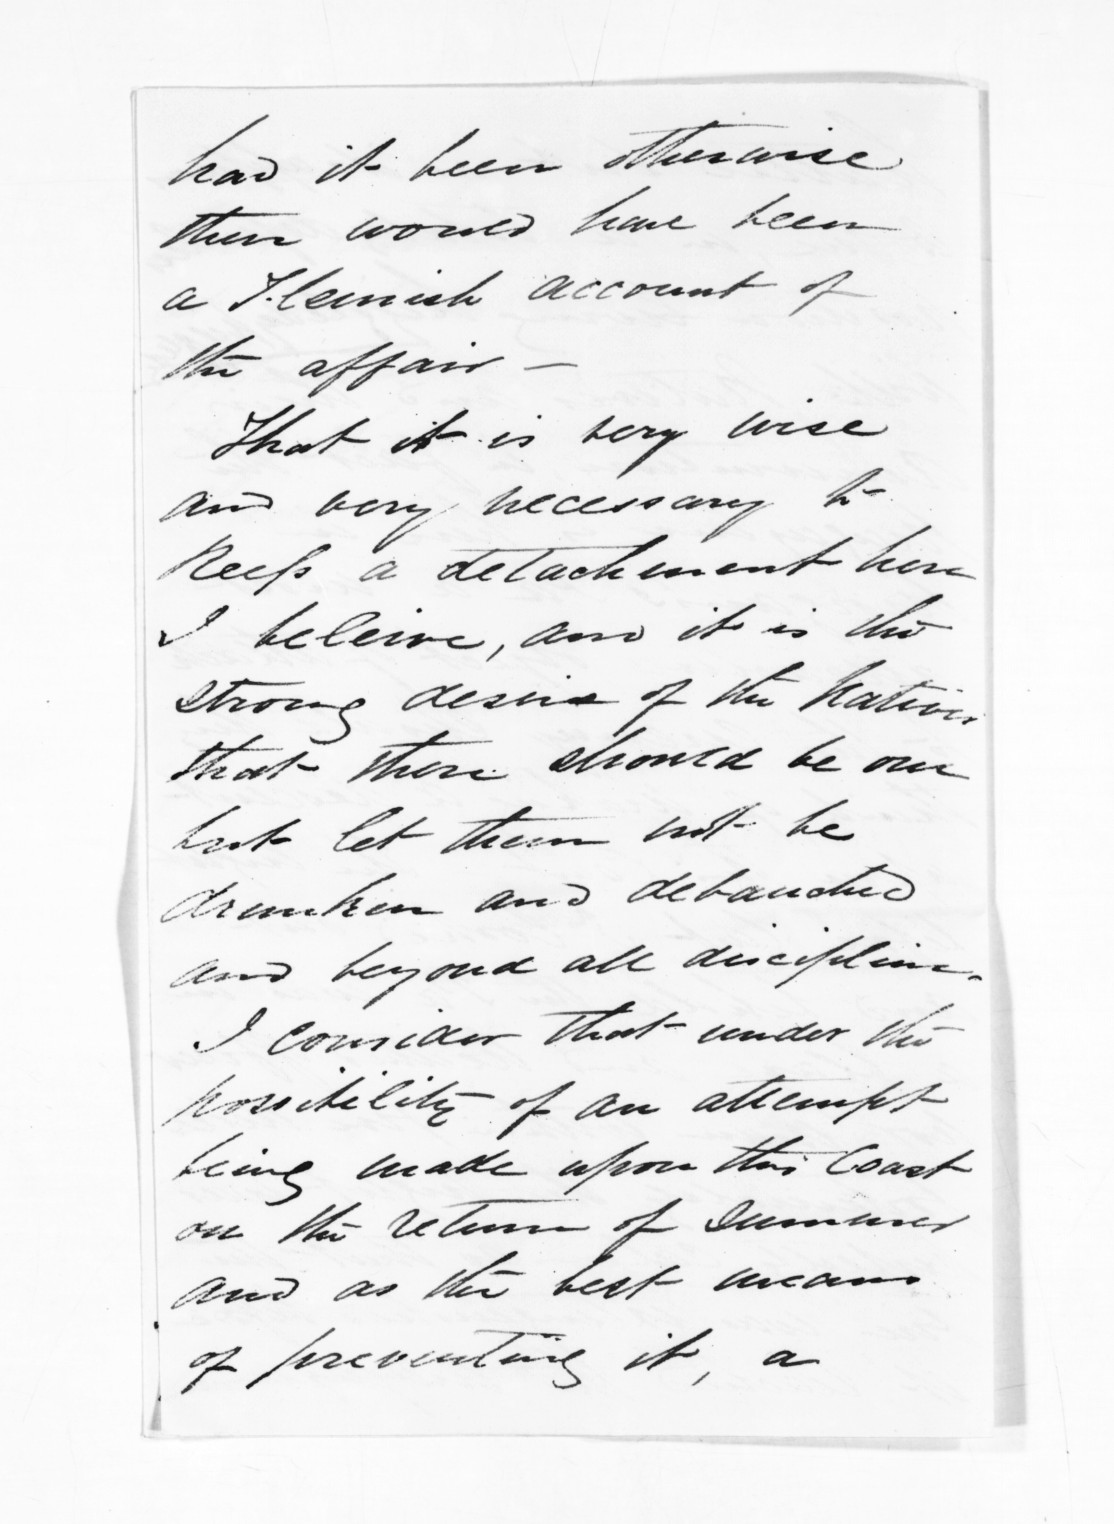 had it been otherwise
there would have been
a Flemish account of
the affair —
That it is very wise
and very necessary to
keep a detachment here
I beleive, and it is the
strong desire of the Natives
that there should be one
but let them not be
drunken and debauched
and beyond all discipline.
I consider that under the
possibility of an attempt
being made upon this Coast
on the return of Summer
and as the best means
of preventing it, a